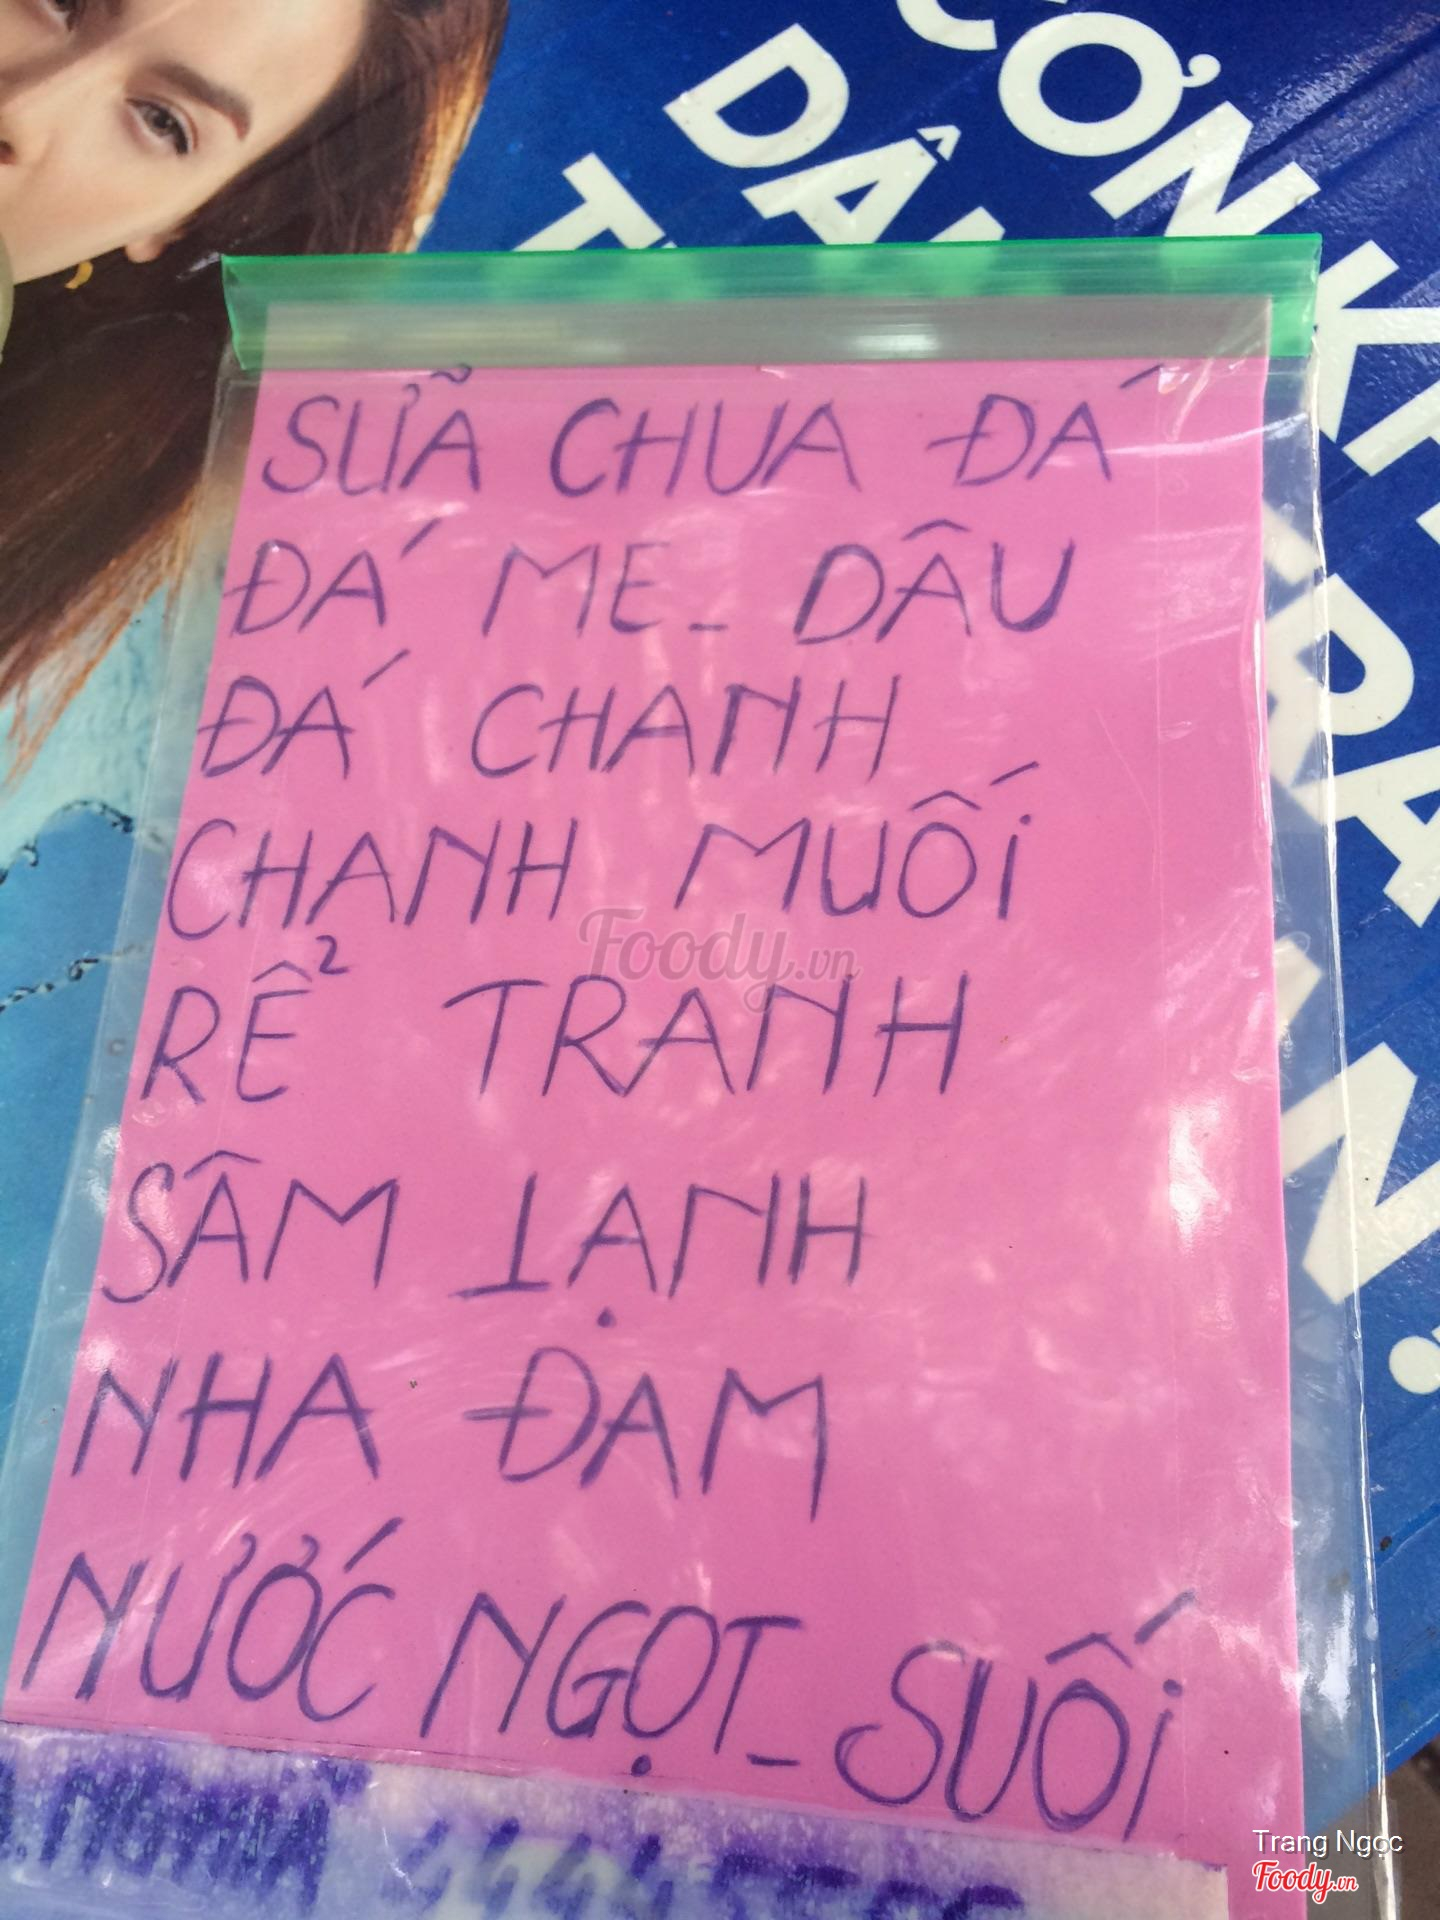 CƠN KH
DÂ
SỮA CHUA ĐÁ
ĐÁ ME_ DÂU
ĐÁ CHANH
CHANH MUỐI
RỂ TRANH
SÂM LẠNH
NHA ĐAM
NƯỚC NGỌT_ SUỐI
Foody.vn
Trang Ngọc
Foody.vn